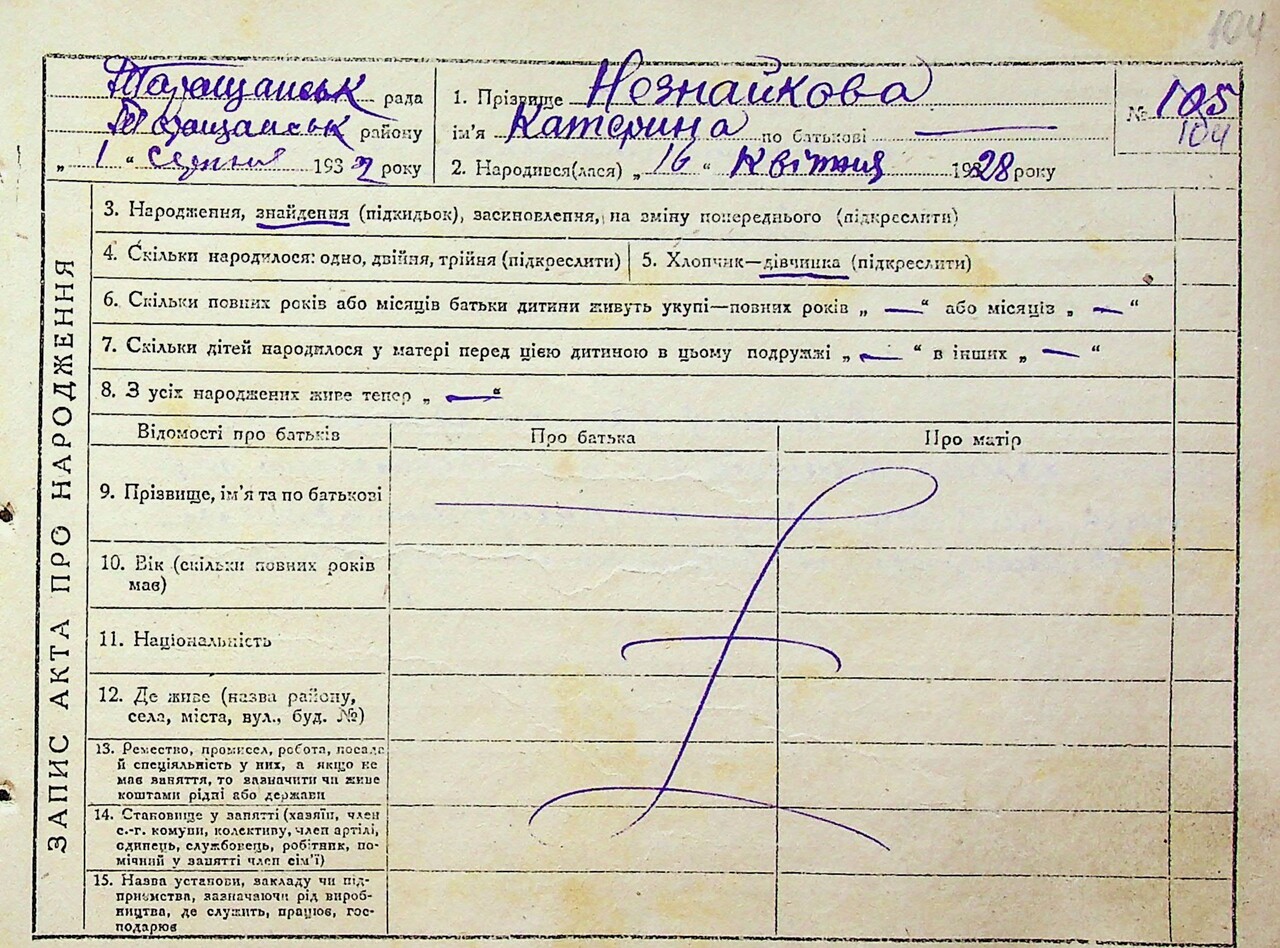 104
Таращанськ рада
Таращанськ району
„ 1 “ Серпня 1932 року
1. Прізвище Незнайкова
ім'я Катерина по батькові —
2. Народився(лася) „ 16 “ Квітня 1928 року
№ 105
104
ЗАПИС АКТА ПРО НАРОДЖЕННЯ
3. Народження, знайдення (підкидьок), засиновлення, на зміну попереднього (підкреслити)
4. Скільки народилося: одно, двійня, трійня (підкреслити)
5. Хлопчик—дівчинка (підкреслити)
6. Скільки повних років або місяців батьки дитини живуть укупі—повних років „ — “ або місяців „ — “
7. Скільки дітей народилося у матері перед цією дитиною в цьому подружжі „ — “ в інших „ — “
8. З усіх народжених живе тепер „ — “
Відомості про батьків
Про батька
Про матір
9. Прізвище, ім'я та по батькові
10. Вік (скільки повних років
мав)
11. Національність
12. Де живе (назва району,
села, міста, вул., буд. №)
13. Ремество, промисел, робота, посада
й спеціяльність у них, а якщо не
має заняття, то зазначити чи живе
коштами рідні або держави
14. Становище у занятті (хазяїн, член
с.-г. комуни, колективу, член артілі,
одинець, службовець, робітник, по-
мічний у занятті член сім'ї)
15. Назва установи, закладу чи під-
приємства, зазначаючи рід вироб-
ництва, де служить, працює, гос-
подарює